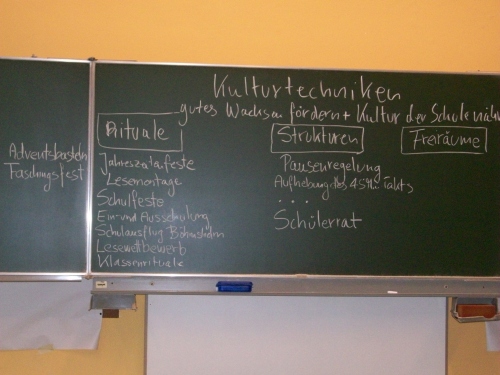 Kulturtechniken
gutes Wachsen fördern + Kultur der Schule nähren
Rituale
Jahreszeitenfeste
Lesemontage
Schulfeste
Ein- und Ausschulung
Schulausflug
Lesewettbewerb
Klassenrituale
Strukturen
Pausenregelung
Aufhebung des 45 Min Takts
. . . .
Schülerrat
Freiräume
Adventsbasteln
Faschingsfest